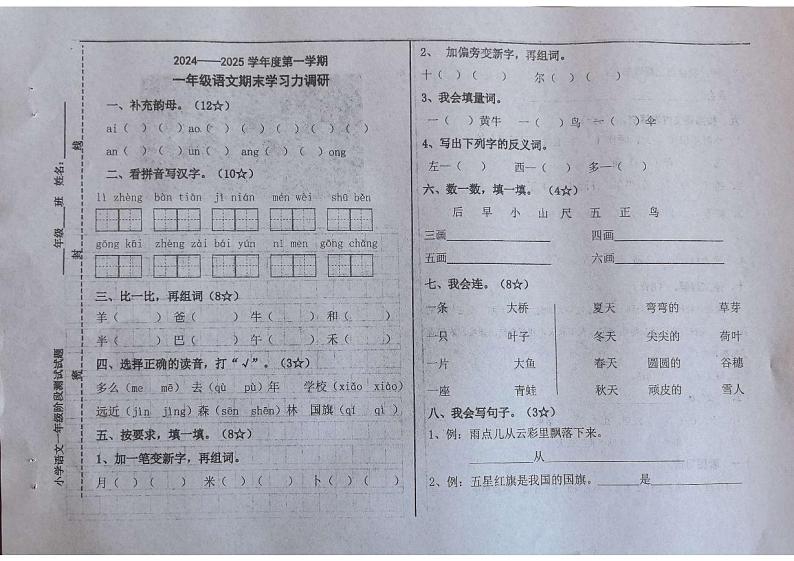 小学语文一年级阶段测试试题
年级 班 姓名:
封
线
2024——2025学年度第一学期
一年级语文期末学习力调研
一、补充韵母。(12☆)
ai ( ) ( ) ao ( ) ( ) ( ) ( ) ( )
an ( ) ( ) un ( ) ang ( ) ( ) ong
二、看拼音写汉字。(10☆)
lì zhèng bàn tiān jǐ nián mén wèi shū běn
gōng kāi zhèng zài bái yún nǐ men gōng chǎng
三、比一比,再组词(8☆)
羊( ) 爸( ) 牛( ) 和( )
半( ) 巴( ) 午( ) 禾( )
四、选择正确的读音,打“√”。(3☆)
多么(me mē) 去(qù pù)年 学校(xiǎo xiào)
远近(jìn jìng) 森(sēn shēn)林 国旗(qí qi )
五、按要求,填一填。(8☆)
1、加一笔变新字,再组词。
月( )( ) 米( )( ) 卜( )( )
2、 加偏旁变新字,再组词。
十( )( ) 尔( )( )
3、我会填量词。
一( )黄牛 一( )鸟 一( )伞
4、写出下列字的反义词。
左一( ) 西一( ) 多一( )
六、数一数,填一填。(4☆)
后 早 小 山 尺 五 正 鸟
三画 四画
五画 六画
七、我会连。(8☆)
一条 大桥 夏天 弯弯的 草芽
一只 叶子 冬天 尖尖的 荷叶
一片 大鱼 春天 圆圆的 谷穗
一座 青蛙 秋天 顽皮的 雪人
八、我会写句子。(3☆)
1、例:雨点儿从云彩里飘落下来。
从
2、例:五星红旗是我国的国旗。 是